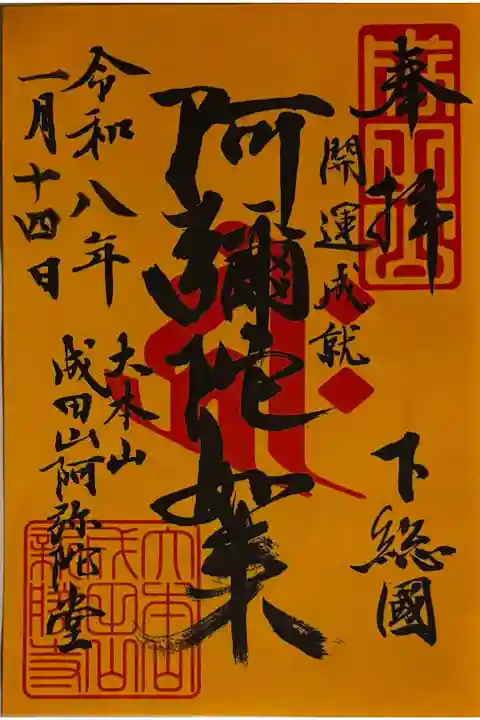 奉拝
開運成就
下総國
阿彌陀如来
大本山
成田山阿弥陀堂
令和八年
一月十四日
大本山
成田山
新勝寺